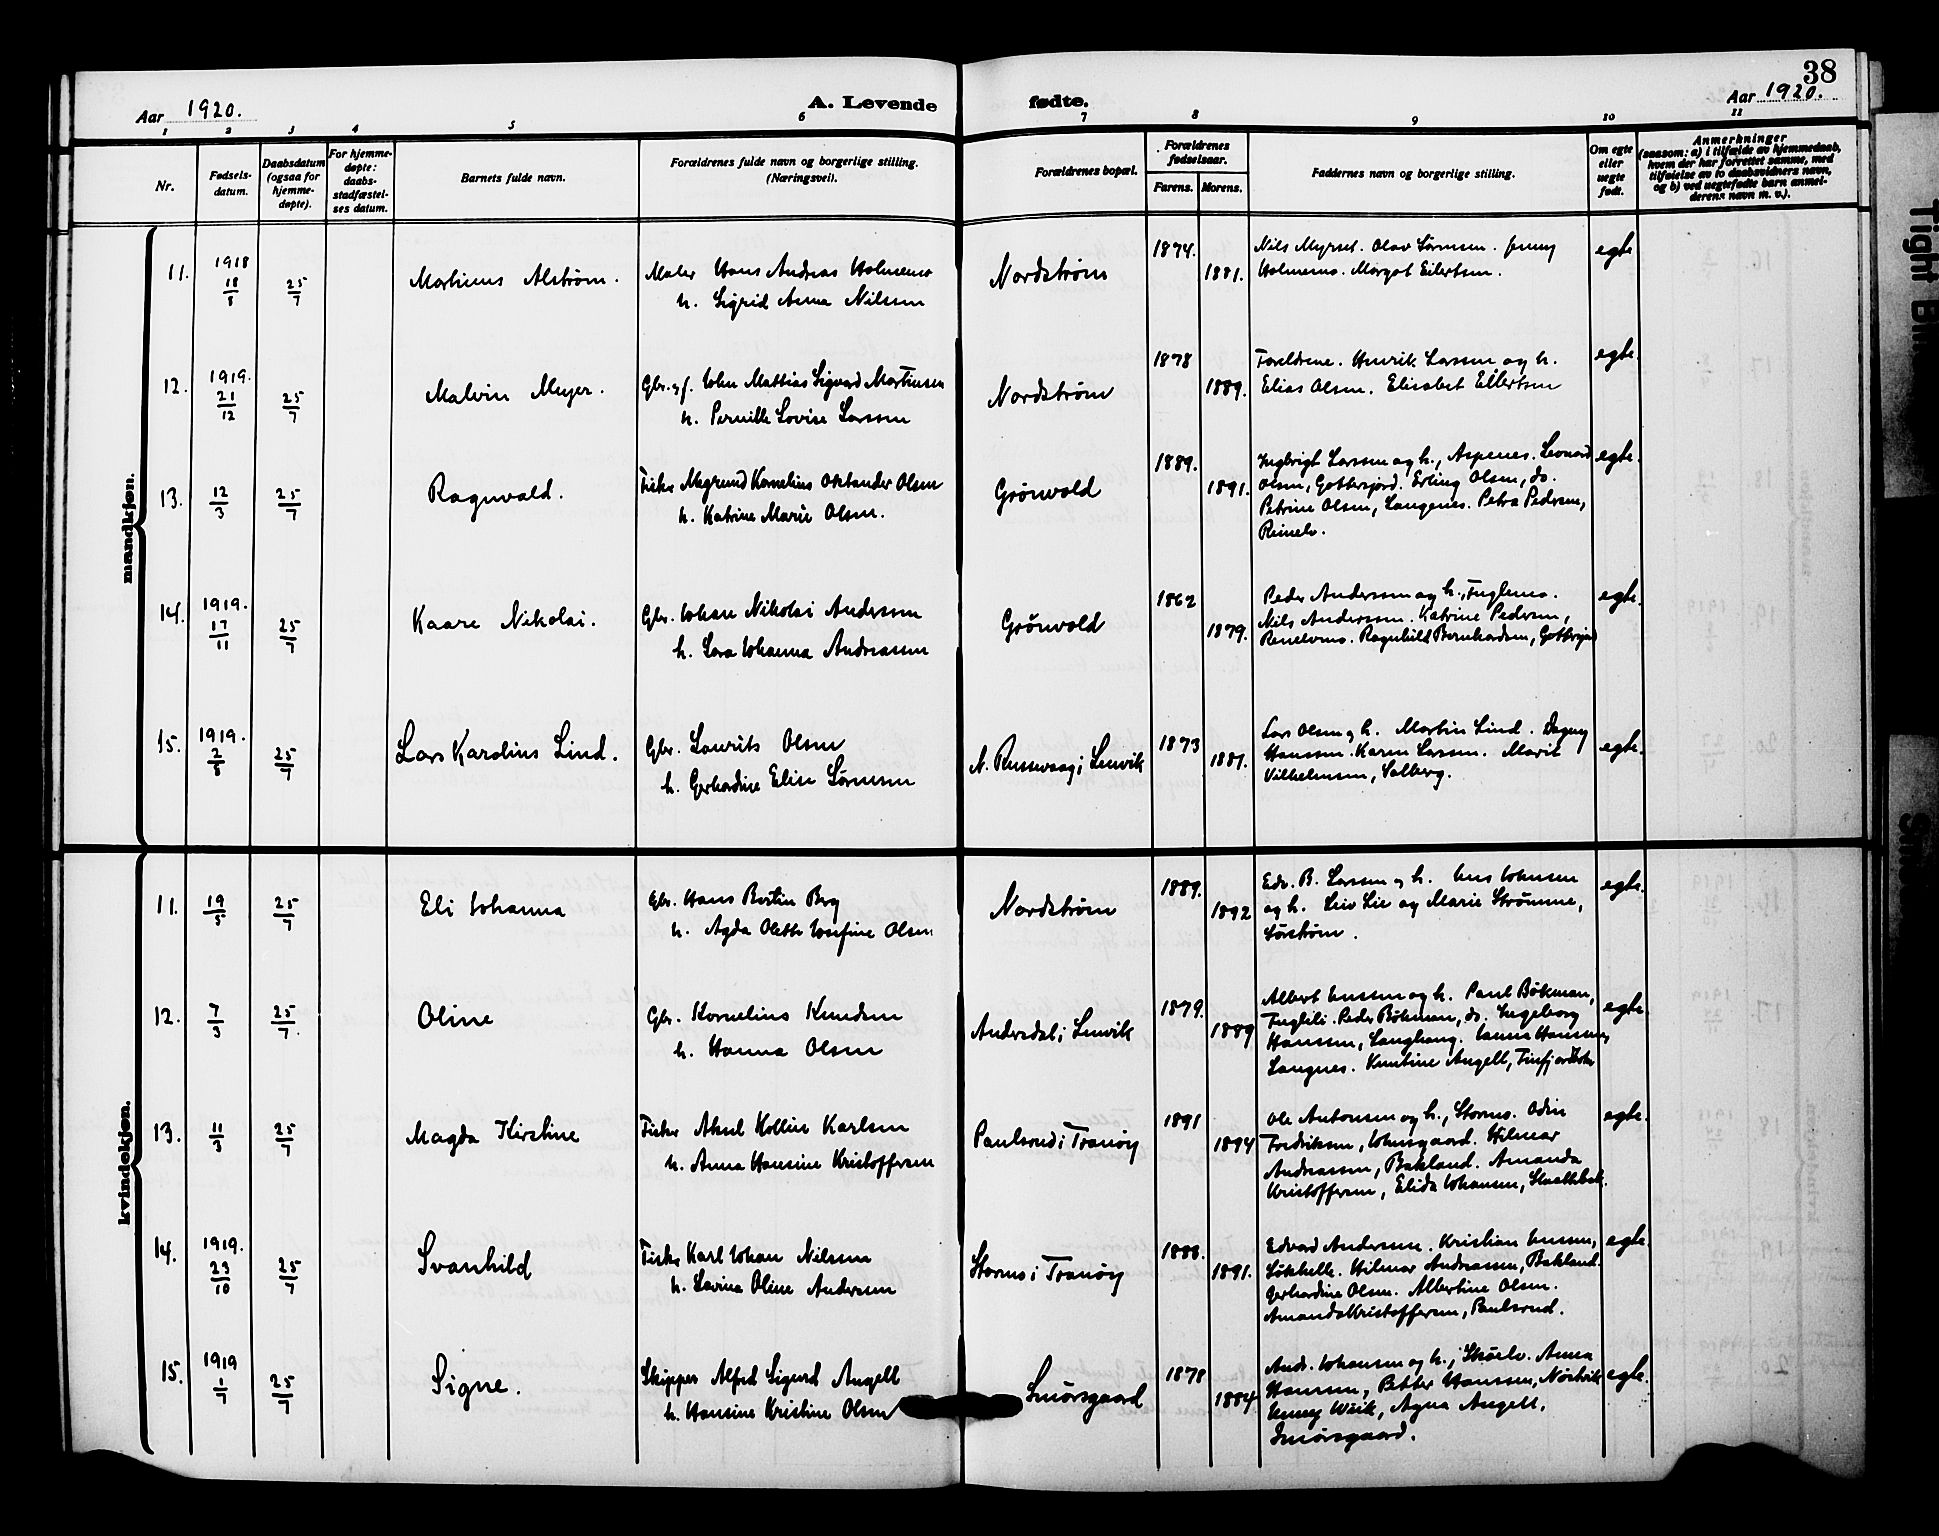 38
Aar 1920.
A. Levende fødte.
Aar 1920.
1 2 3 4 5 6 7 8 9 10 11
Nr.
Fødsels-
datum.
Daabsdatum
(ogsaa for
hjemme-
døpte).
For hjemme-
døpte:
daabs-
stadfæstel-
ses datum.
Barnets fulde navn.
Forældrenes fulde navn og borgerlige stilling.
(Næringsvei).
Forældrenes bopæl.
Forældrenes
fødselsaar.
Farens. Morens.
Faddernes navn og borgerlige stilling.
Om egte
eller
uegte
født.
Anmerkninger
(saasom: a) i tilfælde av hjemmedaab,
hvem der har forrettet samme, med
tilføielse av to daabsvidners navn,
og b) ved uegtefødte barn anmel-
derens navn m. v.).
mandkjøn.
11. 1918 18/8 25/7 Alstrøm. Maler Hans Andreas
h. Sigrid Anna Nilssen
Nordstrøm 1874. 1881.
Nils Myrset. Olav Sørensen. Jenny
Margot Eilertsen.
egte
12. 1919. 21/12 25/7 Malvin Meyer. Gbr. og f. John Mattias Sigvard Martinsen
h. Pernille Lovise Larssen
Nordstrøm 1878 1889.
Foreldrene. Henrik Larssen og h.
Elias Olsen. Elisabet Eilertsen
egte.
13. 12/3 25/7 Ragnvald. Fisker Kornelius Olsen
h. Katrine Marie Olsen.
Grönvold 1889. 1891.
Ingbrigt Larssen og h., Aspenes. Leonard
Olsen, Gottesjord. Erling Olsen, do.
Petrine Olsen, Langenes. Petra Pedersen,
Reinelv.
egte.
14. 1919. 17/11 25/7 Kaare Nikolai. Gbr. Johan Nikolai Anderssen
h. Lara Johanna Andreassen
Grönvold 1862 1879.
Peder Anderssen og h., Fuglenes.
Nils Anderssen. Katrine Pedersen,
Ragnhild Bernhardsen,
egte.
15. 1919. 2/8 25/7 Lars Karolius Lind. Gbr. Laurits Olsen
h. Gerhardine Elise Sørensen
N. Russevaag i Lenvik 1873 1881.
Lars Olsen og h. Martin Lind. Dagny
Hanssen. Karen Larssen. Marit
Vilhelmsen, Solberg.
egte.
kvindekjøn.
11. 19/5 25/7 Eli Johanna Gbr. Hans Bertin Berg
h. Agda Olette Josefine Olsen
Nordstrøm 1889. 1892
Edv. B. Larssen og h. Jens Johnsen
og h. Liv Lie og Marie Strömme,
Sörstrøm.
egte.
12. 7/3 25/7. Oline Gbr. Kornelius Knudsen
h. Hanna Olsen
Andersdal i Lenvik 1879. 1889
Albert Jenssen og h. Paul Bökman,
Fuglli. Peder Bökman, do. Ingeborg
Hanssen, Hanssen,
Langnes. Angell,
egte.
13. 11/3 25/7 Magda Kirstine Fisker Aksel Kolline Karlsen
h. Anna Hansine Kristoffersen
Paulsrud i Tranöy 1891 1894
Ole Antonsen og h., Stornes. Odin
Fredriksen, Johnsgaard. Hilmar
Andreassen, Bakland. Amanda
Kristoffersen, Elida Johansen,
egte.
14. 1919. 23/10 25/7 Svanhild Fisker Karl Johan Nilssen
h. Lavina Oline Anderssen
Stornes i Tranöy 1888. 1891.
Edvard Anderssen. Kristian Jenssen,
Hilmar Andreassen, Bakland.
Gerhardine Olsen. Albertine Olsen.
Amanda Kristoffersen, Paulsrud.
egte.
15. 1919 1/7 25/7 Signe. Skipper Alfred Sigurd Angell
h. Hansine Kristine Olsen
Smörsgaard 1878 1884
Andr. Johansen og h., Skörelv. Anna
Hansen, Petter Hanssen,
Jenny Wiik, Agna Angell,
Smörsgaard.
egte.
Tight Bi